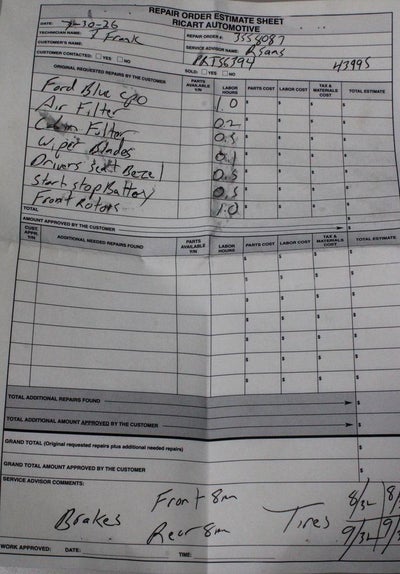 REPAIR ORDER ESTIMATE SHEET
RICART AUTOMOTIVE
DATE: -30-26
TECHNICIAN NAME: T Frank REPAIR ORDER #: JSS8087
CUSTOMER'S NAME: SERVICE ADVISOR NAME: B Sans
CUSTOMER CONTACTED: YES NO PRTS6394 43995
SOLD: YES NO
ORIGINAL REQUESTED REPAIRS BY THE CUSTOMER PARTS AVAILABLE Y/N LABOR HOURS PARTS COST LABOR COST TAX & MATERIALS COST TOTAL ESTIMATE
Ford Blue CPO 1.0 $
Air Filter 0.2 $
Cabin Filter 0.5 $
Wiper Blades 0.1 $
Drivers Seat Bezel 0.5 $
Start stop Battery 0.5 $
Front Rotors 1.0 $
TOTAL
AMOUNT APPROVED BY THE CUSTOMER $
CUST. APPR. Y/N ADDITIONAL NEEDED REPAIRS FOUND PARTS AVAILABLE Y/N LABOR HOURS PARTS COST LABOR COST TAX & MATERIALS COST TOTAL ESTIMATE
$
$
$
$
$
$
$
TOTAL ADDITIONAL REPAIRS FOUND $
TOTAL ADDITIONAL AMOUNT APPROVED BY THE CUSTOMER $
GRAND TOTAL (Original requested repairs plus additional needed repairs) $
GRAND TOTAL AMOUNT APPROVED BY THE CUSTOMER $
SERVICE ADVISOR COMMENTS:
Brakes Front 8m Tires 8/32 8/3
Rear 8m 9/32 9/3
WORK APPROVED: DATE: TIME: